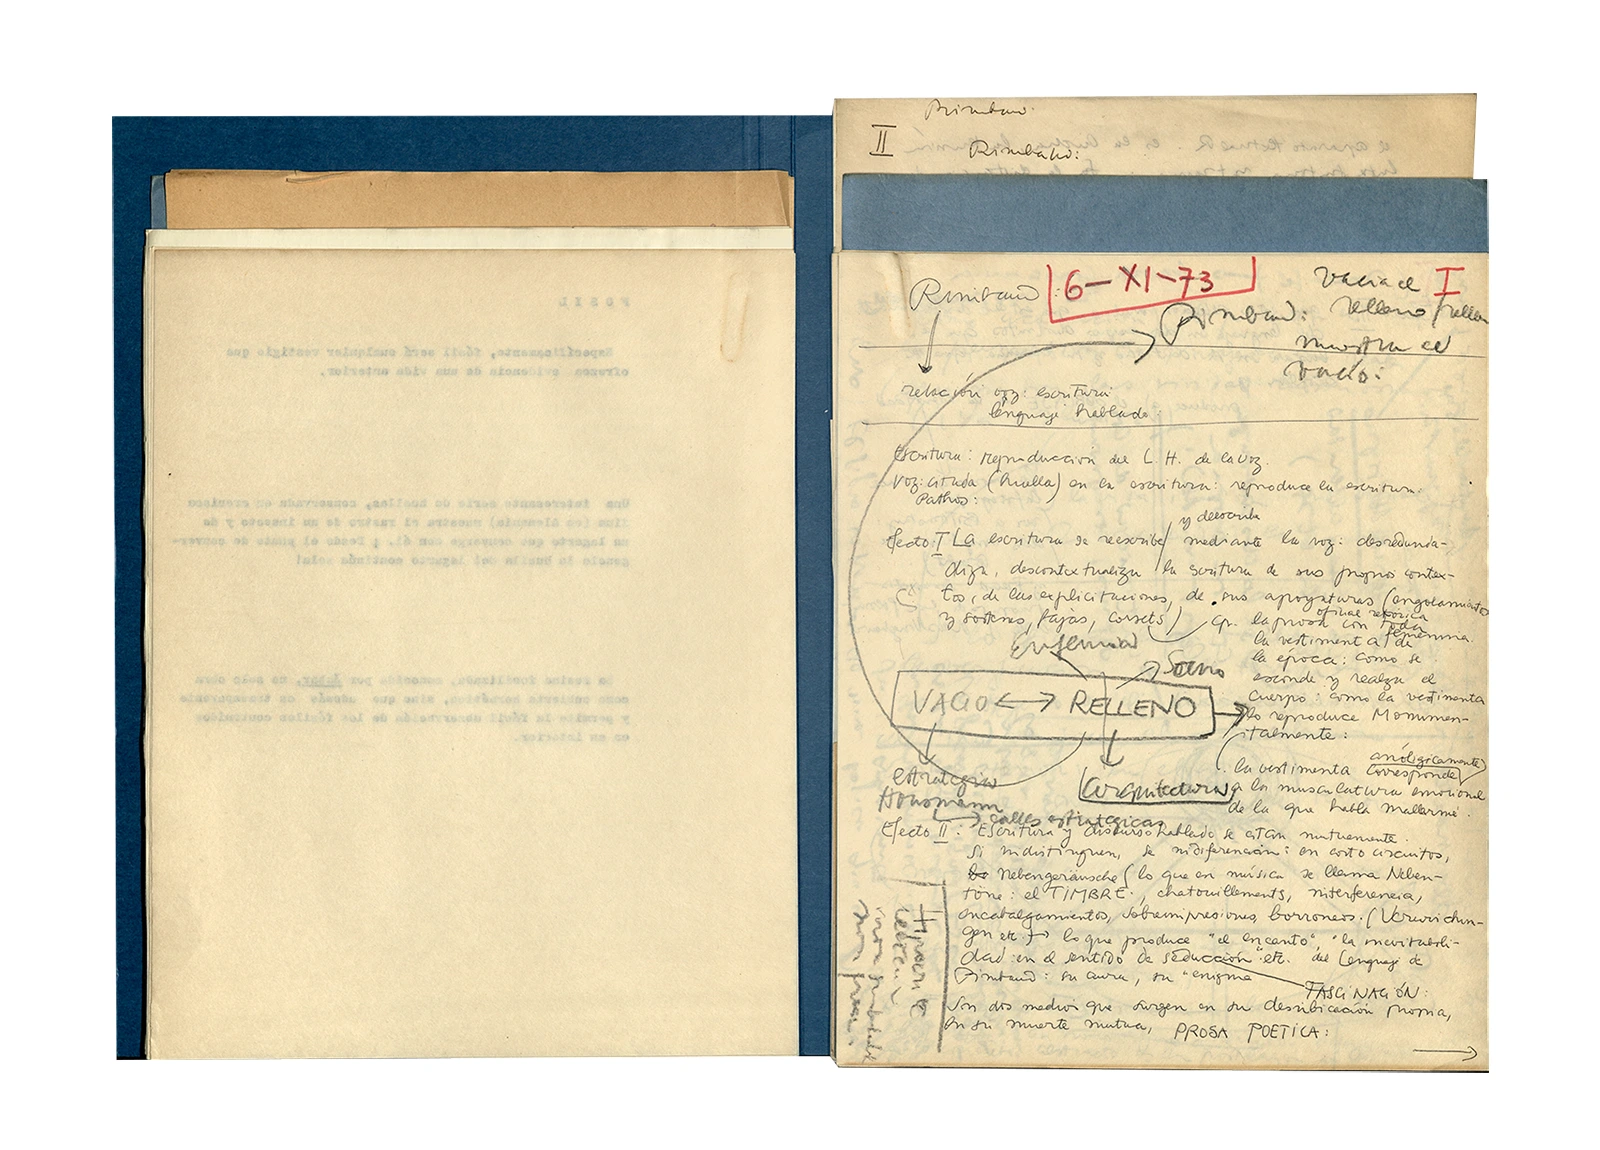 FOSIL
Específicamente, fósil será cualquier vestigio que
ofrezca evidencia de una vida anterior.
Una interesante serie de huellas, conservada en
(en Alemania) muestra el rastro de un insecto y de
un lagarto que converge con él. ¡ Desde el punto de conver-
gencia la huella del lagarto continúa sola!
La resina fosilizada, conocida por ámbar, no solo obra
como cubierta hermética, sino que además es transparente
y permite la fácil observación de los fósiles contenidos
en su interior.
Rimbaud:
II
Rimbaud:
Rimbaud:
6-XI-73
I
Rimbaud:
vacía el
relleno
muestra el
vacío:
relación voz: escritura
lenguaje hablado:
Escritura: reproducción del L. H. de la voz.
Voz: citada (huella) en la escritura: reproduce la escritura:
Pathos:
y describe
Efecto I La escritura se reescribe/ mediante la voz: desredunda-
diza, descontextualiza la escritura de sus propios contex-
tos, de las explicitaciones, de sus apoyaturas (
y sostenes, fajas, corsets)
cp. la prosa con toda
oficial retórica
la vestimenta femenina de
la época: como se
esconde y realza el
cuerpo: como la vestimenta
lo reproduce Monumen-
talmente:
VACIO ↔ RELLENO
la vestimenta corresponde
análogicamente
a la musculatura emocional
de la que habla Mallarmé.
estrategia
Hausmann
calles estratégicas
Efecto II. Escritura y discurso hablado se citan mutuamente.
Si indistinguen, se indiferencian: en corto circuitos,
Nebengeräusche (lo que en música se llama Neben-
töne: el TIMBRE, chatouillements, interferencia,
encabalgamientos, sobreimpresiones, borroneos. (Verwischun-
gen etc.) → lo que produce "el encanto", "la inevitabili-
dad: en el sentido de seducción etc. del lenguaje de
Rimbaud: su aura, su "enigma
FASCINACIÓN:
Son dos medios que surgen en su desubicación propia,
en su muerte mutua, PROSA POETICA: